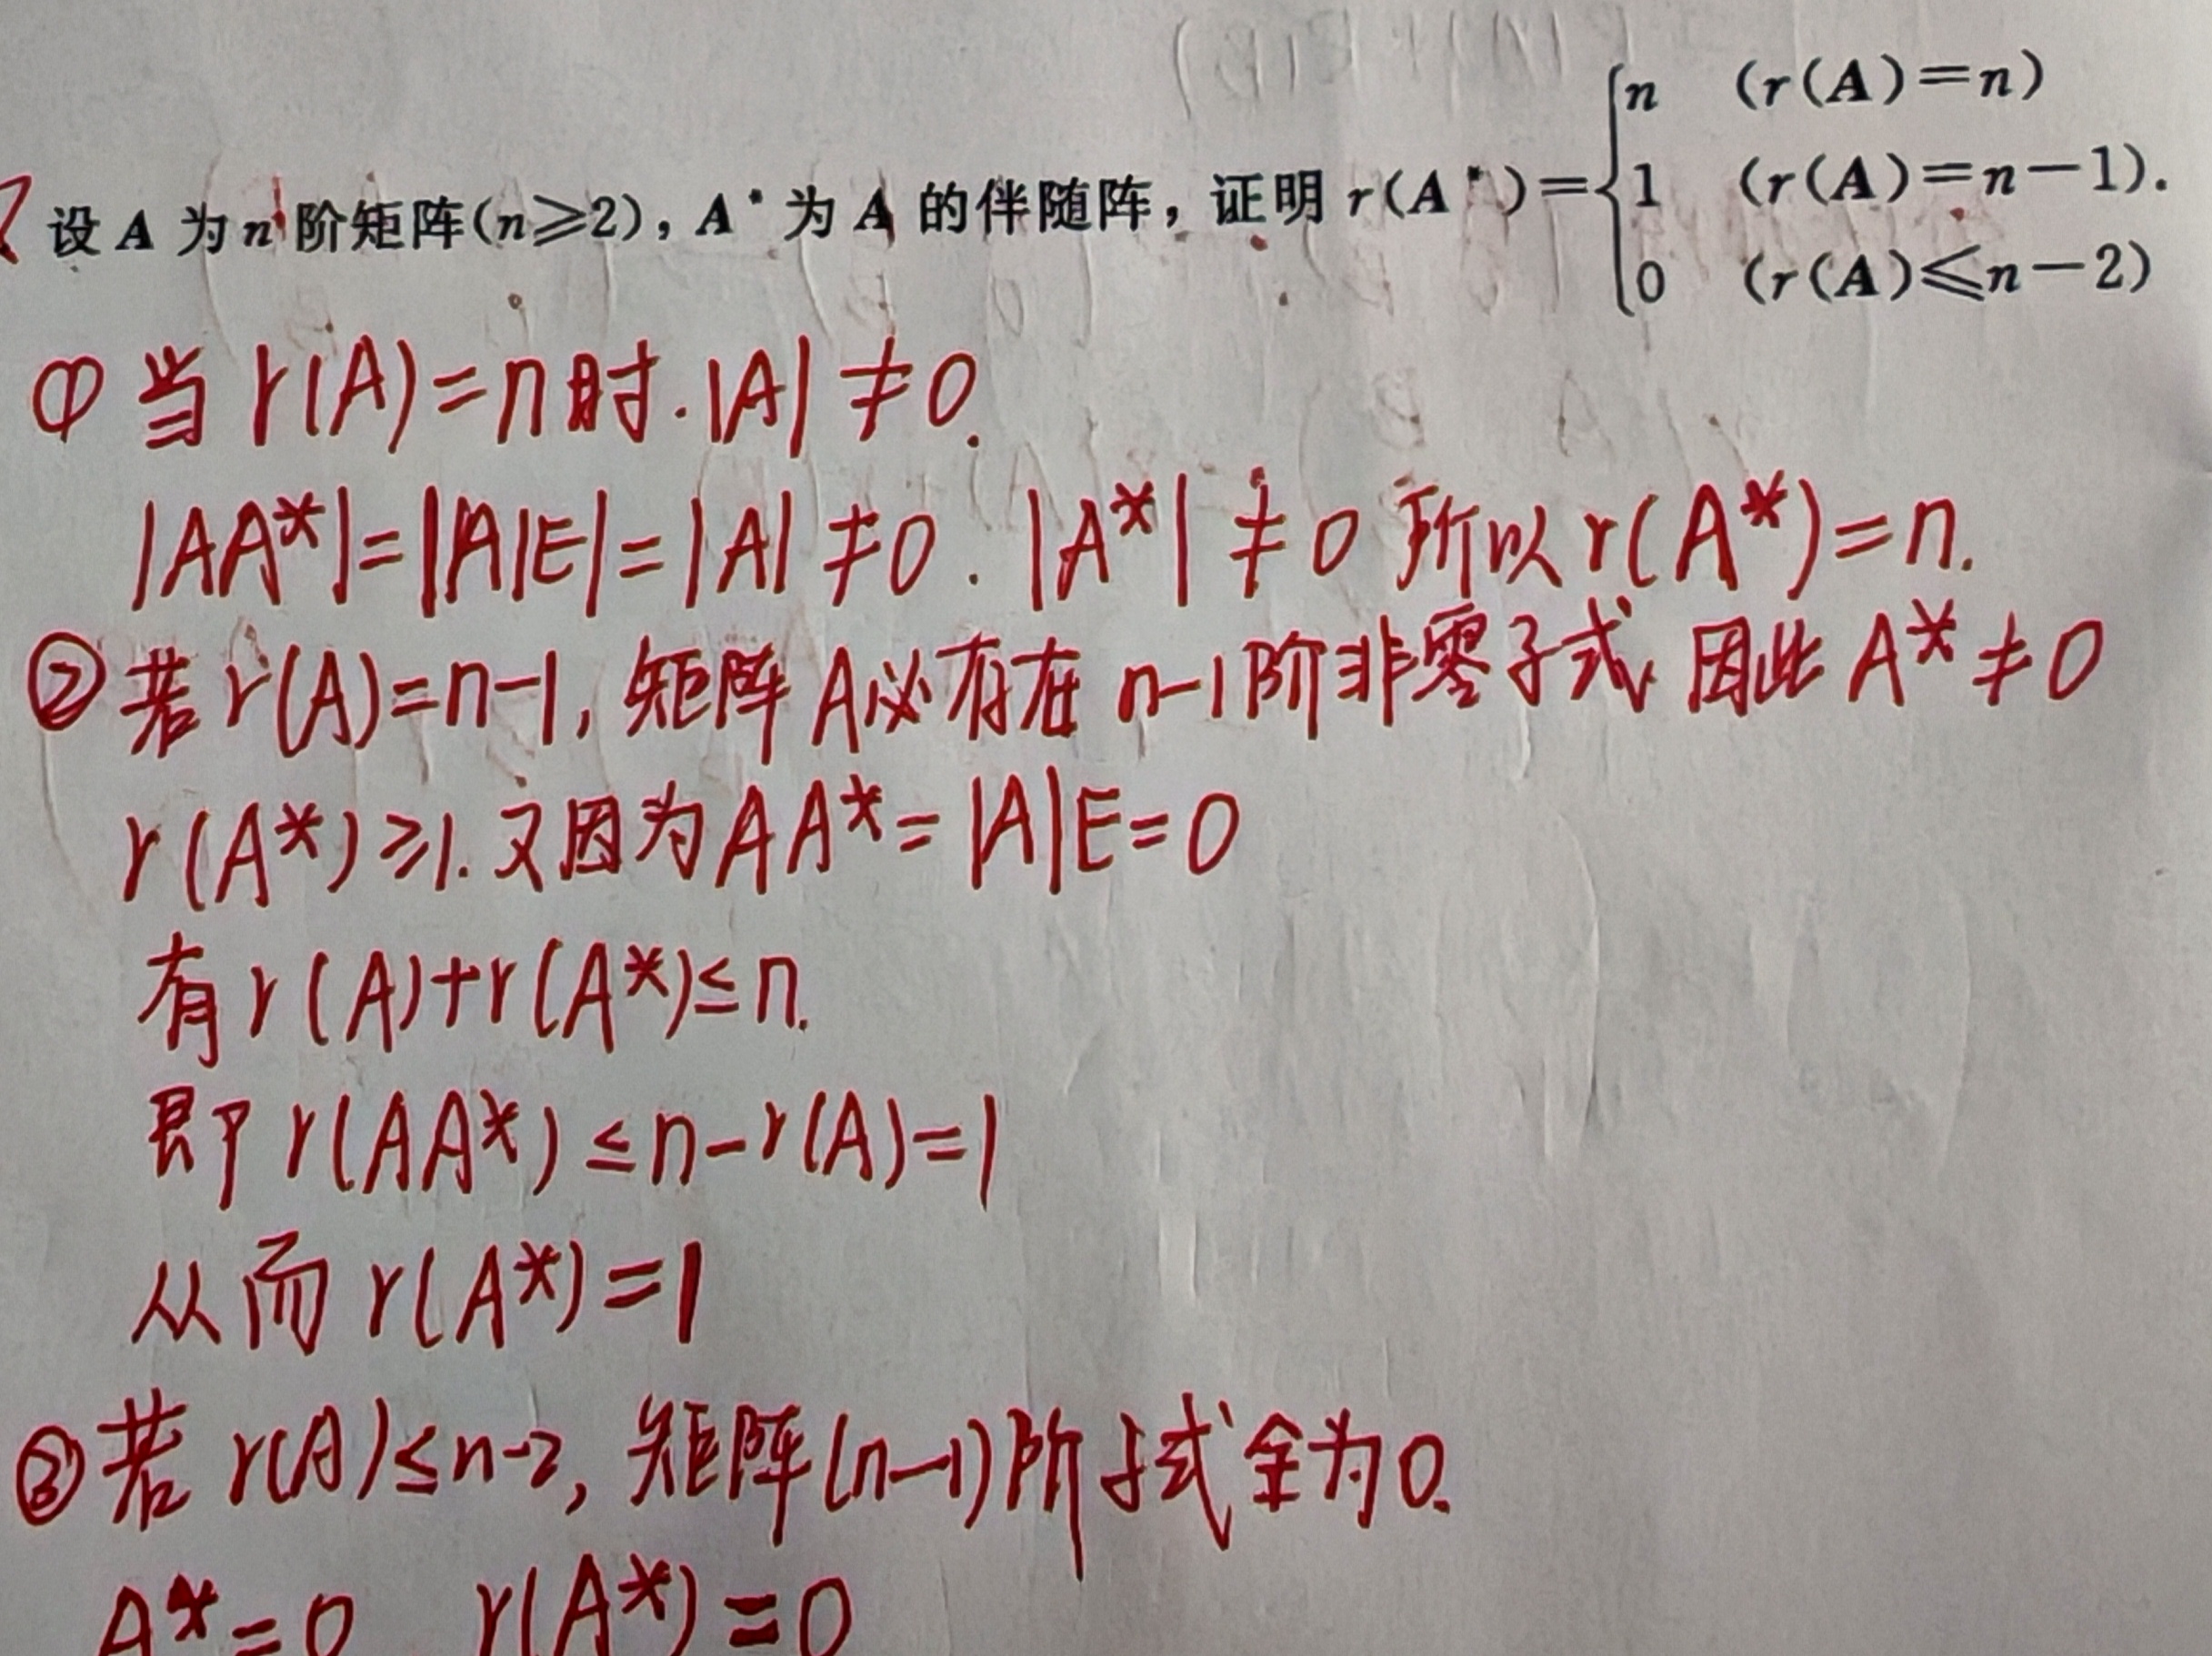 设 A 为 n 阶矩阵(n≥2), A* 为 A 的伴随阵, 证明 r(A*)={n (r(A)=n)
1 (r(A)=n-1).
0 (r(A)≤n-2)
① 当 r(A)=n时. |A|≠0.
|AA*|=||A|E|=|A|≠0. |A*|≠0 所以 r(A*)=n.
② 若 r(A)=n-1, 矩阵 A必存在 n-1阶非零子式, 因此 A*≠0
r(A*)≥1. 又因为 AA*=|A|E=0
有 r(A)+r(A*)≤n.
即 r(AA*)≤n-r(A)=1
从而 r(A*)=1
③ 若 r(A)≤n-2, 矩阵(n-1)阶子式全为0.
A*=0 r(A*)=0